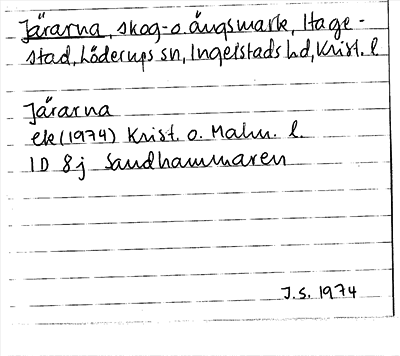 Järarna, skog- o. ängsmark, Hage-
stad, Löderups sn, Ingelstads hd, Krist. l
Järarna
ek (1974) Krist. o. Malm. l.
1D 8j Sandhammaren
J.S. 1974